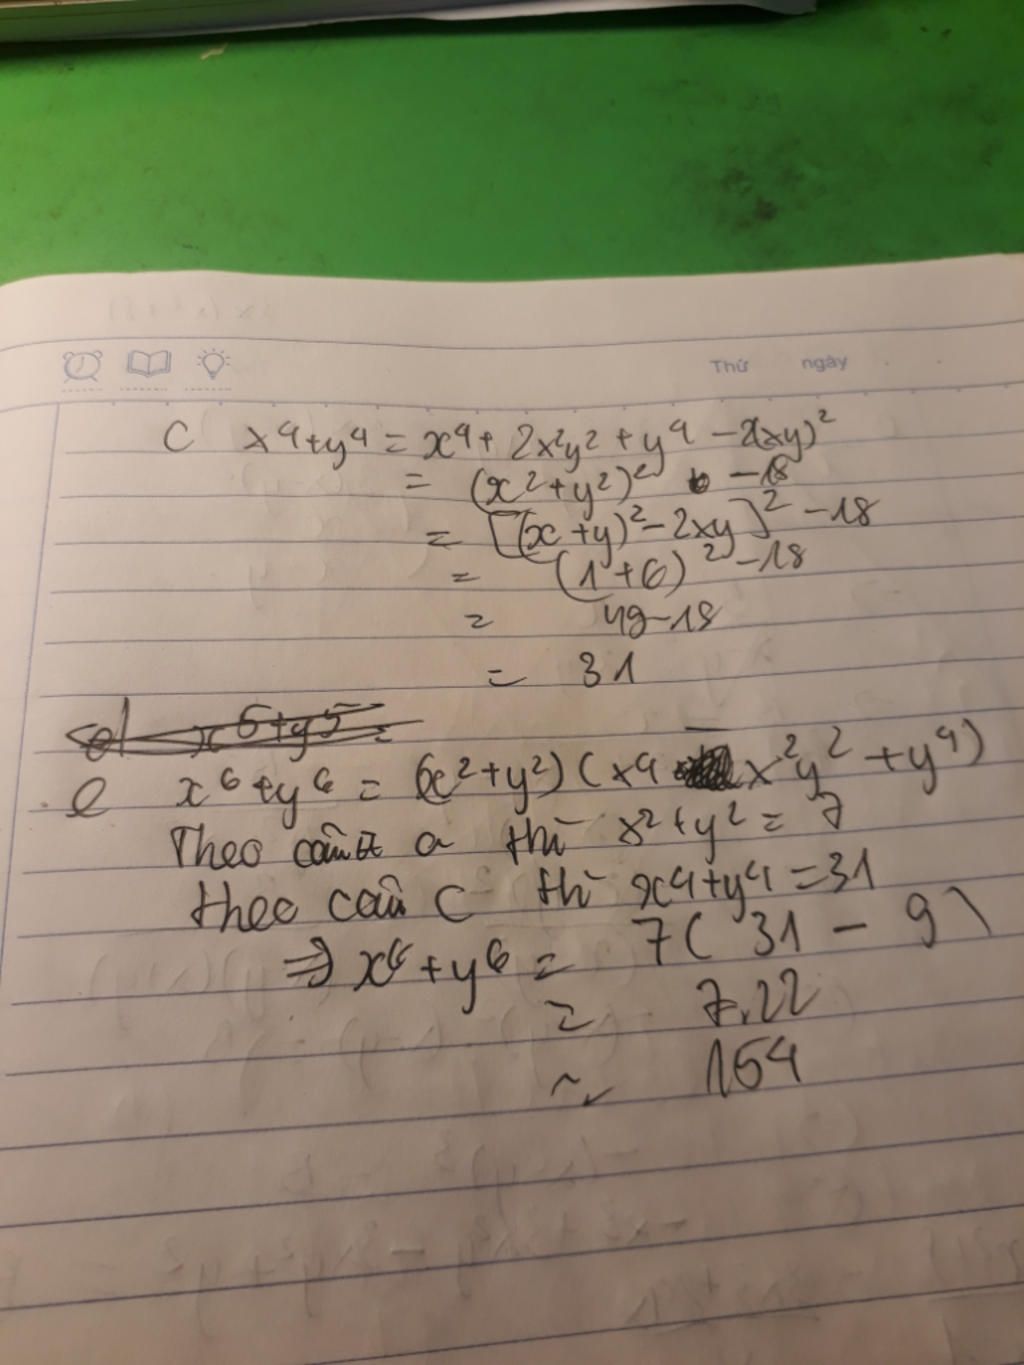 Thứ ngày
C x⁴+y⁴ = x⁴ + 2x²y² + y⁴ - 2(xy)²
= (x²+y²)² - 18
= [(x+y)² - 2xy]² - 18
= (1+6)² - 18
= 49-18
= 31
d x⁵+y⁵ =
e x⁶+y⁶ = (x²+y²)(x⁴ - x²y² + y⁴)
Theo câu a thì x²+y² = 7
theo câu C thì x⁴+y⁴ = 31
⇒ x⁶+y⁶ = 7(31 - 9)
= 7.22
= 154